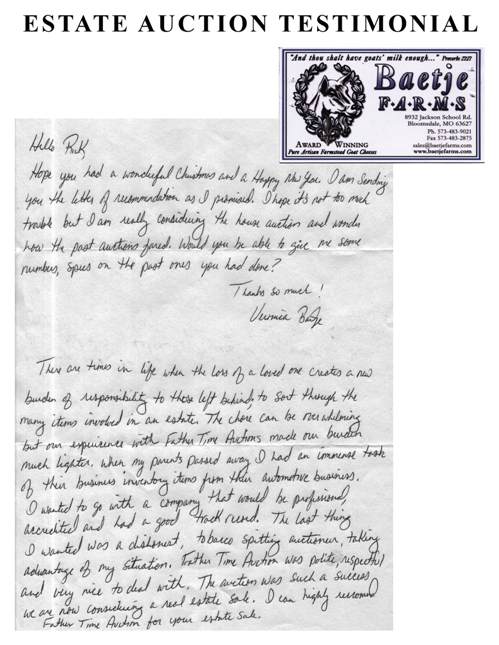 ESTATE AUCTION TESTIMONIAL
"And thou shalt have goats' milk enough..." Proverbs 27:27
Baetje
F·A·R·M·S
8932 Jackson School Rd.
Bloomsdale, MO 63627
Ph. 573-483-9021
Fax 573-483-2875
sales@baetjefarms.com
www.baetjefarms.com
AWARD WINNING
Pure Artisan Farmstead Goat Cheeses
Hello Rick
Hope you had a wonderful Christmas and a Happy New Year. I am sending
you the letter of recommendation as I promised. I hope it's not too much
trouble but I am really considering the house auction and wonder
how the past auctions fared. Would you be able to give me some
numbers, on the past ones you had done?
Thanks so much!
Veronica Baetje
There are times in life when the loss of a loved one creates a new
burden of responsibility to those left behind, to sort through the
many items involved in an estate. The chore can be overwhelming
but our experience with Father Time Auctions made our burden
much lighter. When my parents passed away I had an immense task
of their business inventory items from their automotive business.
I wanted to go with a company that would be professional,
accredited and had a good track record. The last thing
I wanted was a dishonest, tobacco spitting auctioneer, taking
advantage of my situation. Father Time Auction was polite, respectful
and very nice to deal with. The auction was such a success,
we are now considering a real estate sale. I can highly recommend
Father Time Auction for your estate sale.